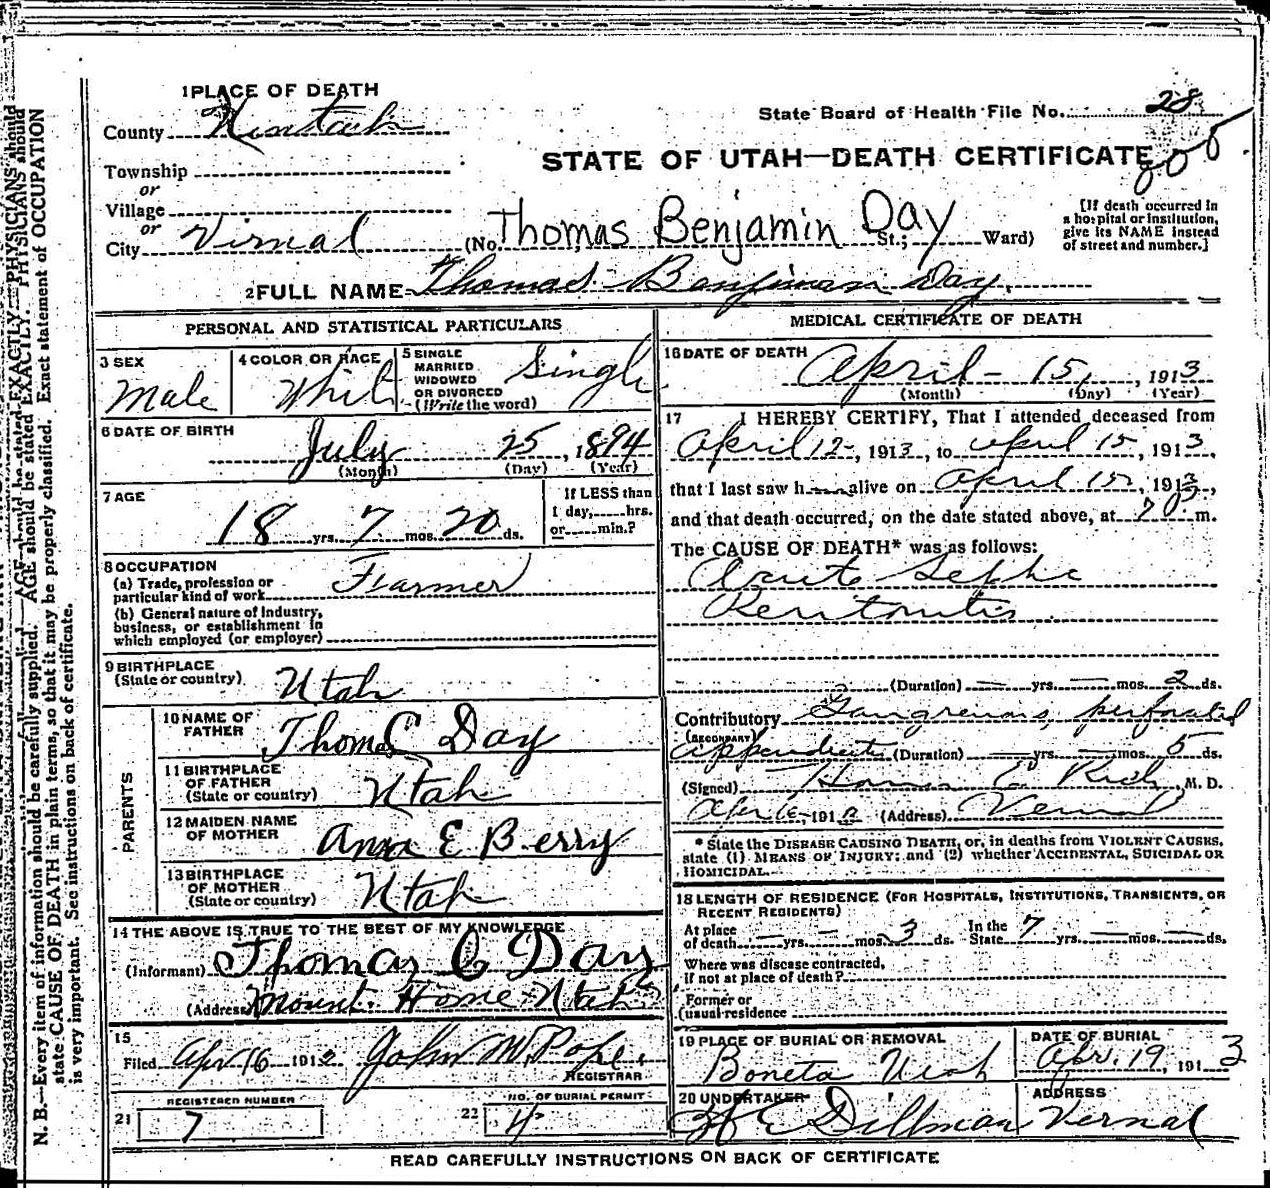 1 PLACE OF DEATH
County
State Board of Health File No. 28
STATE OF UTAH—DEATH CERTIFICATE
Township
or
Village
or
City Virnal
(No. Thomas Benjamin Day St.; Ward)
[If death occurred in
a hospital or institution,
give its NAME instead
of street and number.]
2 FULL NAME Thomas Benjiman Day.
PERSONAL AND STATISTICAL PARTICULARS
3 SEX
Male
4 COLOR OR RACE
White
5 SINGLE
MARRIED
WIDOWED
OR DIVORCED
(Write the word)
Single
6 DATE OF BIRTH
July 25, 1894
(Month) (Day) (Year)
7 AGE
18 yrs. 7 mos. 20 ds.
If LESS than
1 day, hrs.
or min.?
8 OCCUPATION
(a) Trade, profession or
particular kind of work Farmer
(b) General nature of Industry,
business, or establishment in
which employed (or employer)
9 BIRTHPLACE
(State or country) Utah
PARENTS
10 NAME OF
FATHER
Thom C Day
11 BIRTHPLACE
OF FATHER
(State or country) Utah
12 MAIDEN NAME
OF MOTHER Anna E Berry
13 BIRTHPLACE
OF MOTHER
(State or country) Utah
14 THE ABOVE IS TRUE TO THE BEST OF MY KNOWLEDGE
(Informant) Thomas C Day
(Address) Mount Home Utah
15
Filed Apr 16 1912 John M. Pope.
REGISTRAR
REGISTERED NUMBER
21 7
NO. OF BURIAL PERMIT
22 4
MEDICAL CERTIFICATE OF DEATH
16 DATE OF DEATH
April 15, 1913
(Month) (Day) (Year)
17 I HEREBY CERTIFY, That I attended deceased from
April 12, 1913, to April 15, 1913,
that I last saw h alive on April 15, 1913,
and that death occurred, on the date stated above, at 7 m.
The CAUSE OF DEATH* was as follows:
Acute Septic
Peritonitis
(Duration) — yrs. — mos. 2 ds.
Contributory Gangrenous, perforated
(SECONDARY)
appendicitis (Duration) — yrs. — mos. 5 ds.
(Signed) E. Rich, M. D.
191 (Address) Vernal
* State the DISEASE CAUSING DEATH, or, in deaths from VIOLENT CAUSES,
state (1) MEANS OF INJURY; and (2) whether ACCIDENTAL, SUICIDAL OR
HOMICIDAL.
18 LENGTH OF RESIDENCE (FOR HOSPITALS, INSTITUTIONS, TRANSIENTS, OR
RECENT RESIDENTS)
At place
of death — yrs. — mos. 3 ds.
In the
State 7 yrs. — mos. — ds.
Where was disease contracted,
if not at place of death?
Former or
usual residence
19 PLACE OF BURIAL OR REMOVAL
Boneta Utah
DATE OF BURIAL
Apr. 19, 1913
20 UNDERTAKER
E Dillman
ADDRESS
Vernal
READ CAREFULLY INSTRUCTIONS ON BACK OF CERTIFICATE
N. B.—Every item of information should be carefully supplied. AGE should be stated EXACTLY. PHYSICIANS should
state CAUSE OF DEATH in plain terms, so that it may be properly classified. Exact statement of OCCUPATION
is very important. See instructions on back of certificate.